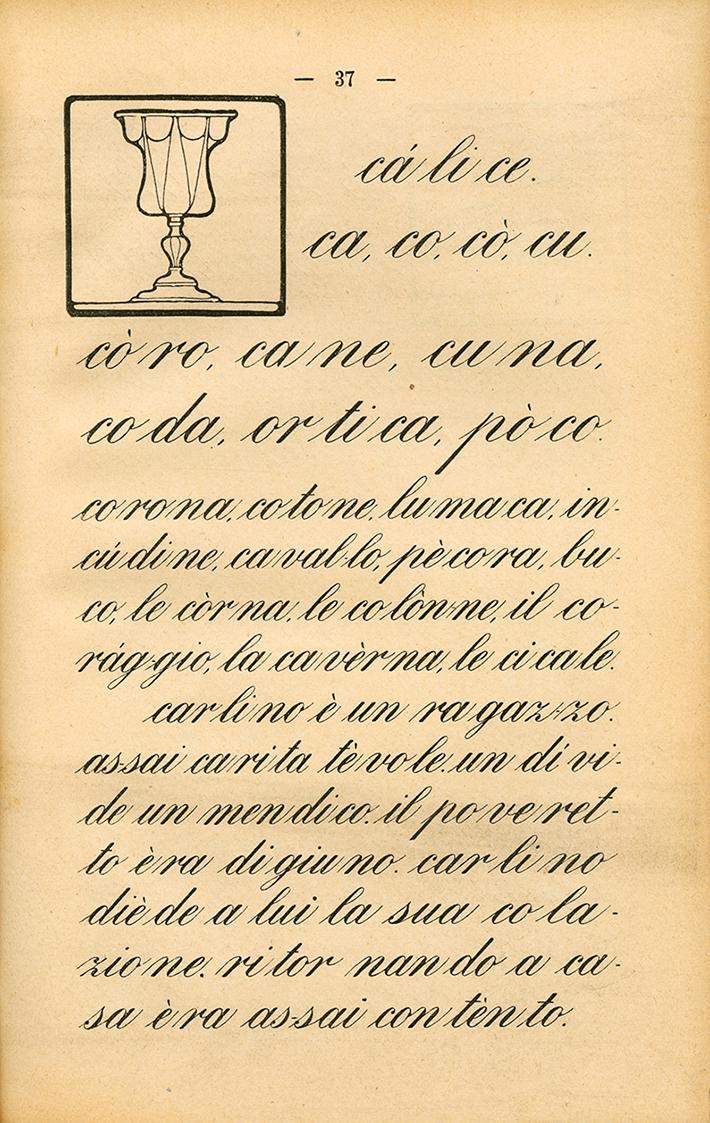 — 37 —
cá li ce.
ca, co, cò, cu.
cò ro, ca ne, cu na,
co da, or ti ca, pò co.
co ro na, co to ne, lu ma ca, in-
cú di ne, ca val-lo, pè co ra, bu-
co, le còr na, le co lòn-ne, il co-
rág-gio, la ca vèr na, le ci ca le.
car li no è un ra gaz-zo.
as-sai ca ri ta tè vo le. un dí vi-
de un men di co. il po ve ret-
to è ra di giu no. car li no
diè de a lui la sua co la-
zio ne. ri tor nan do a ca-
sa è ra as-sai con tèn to.